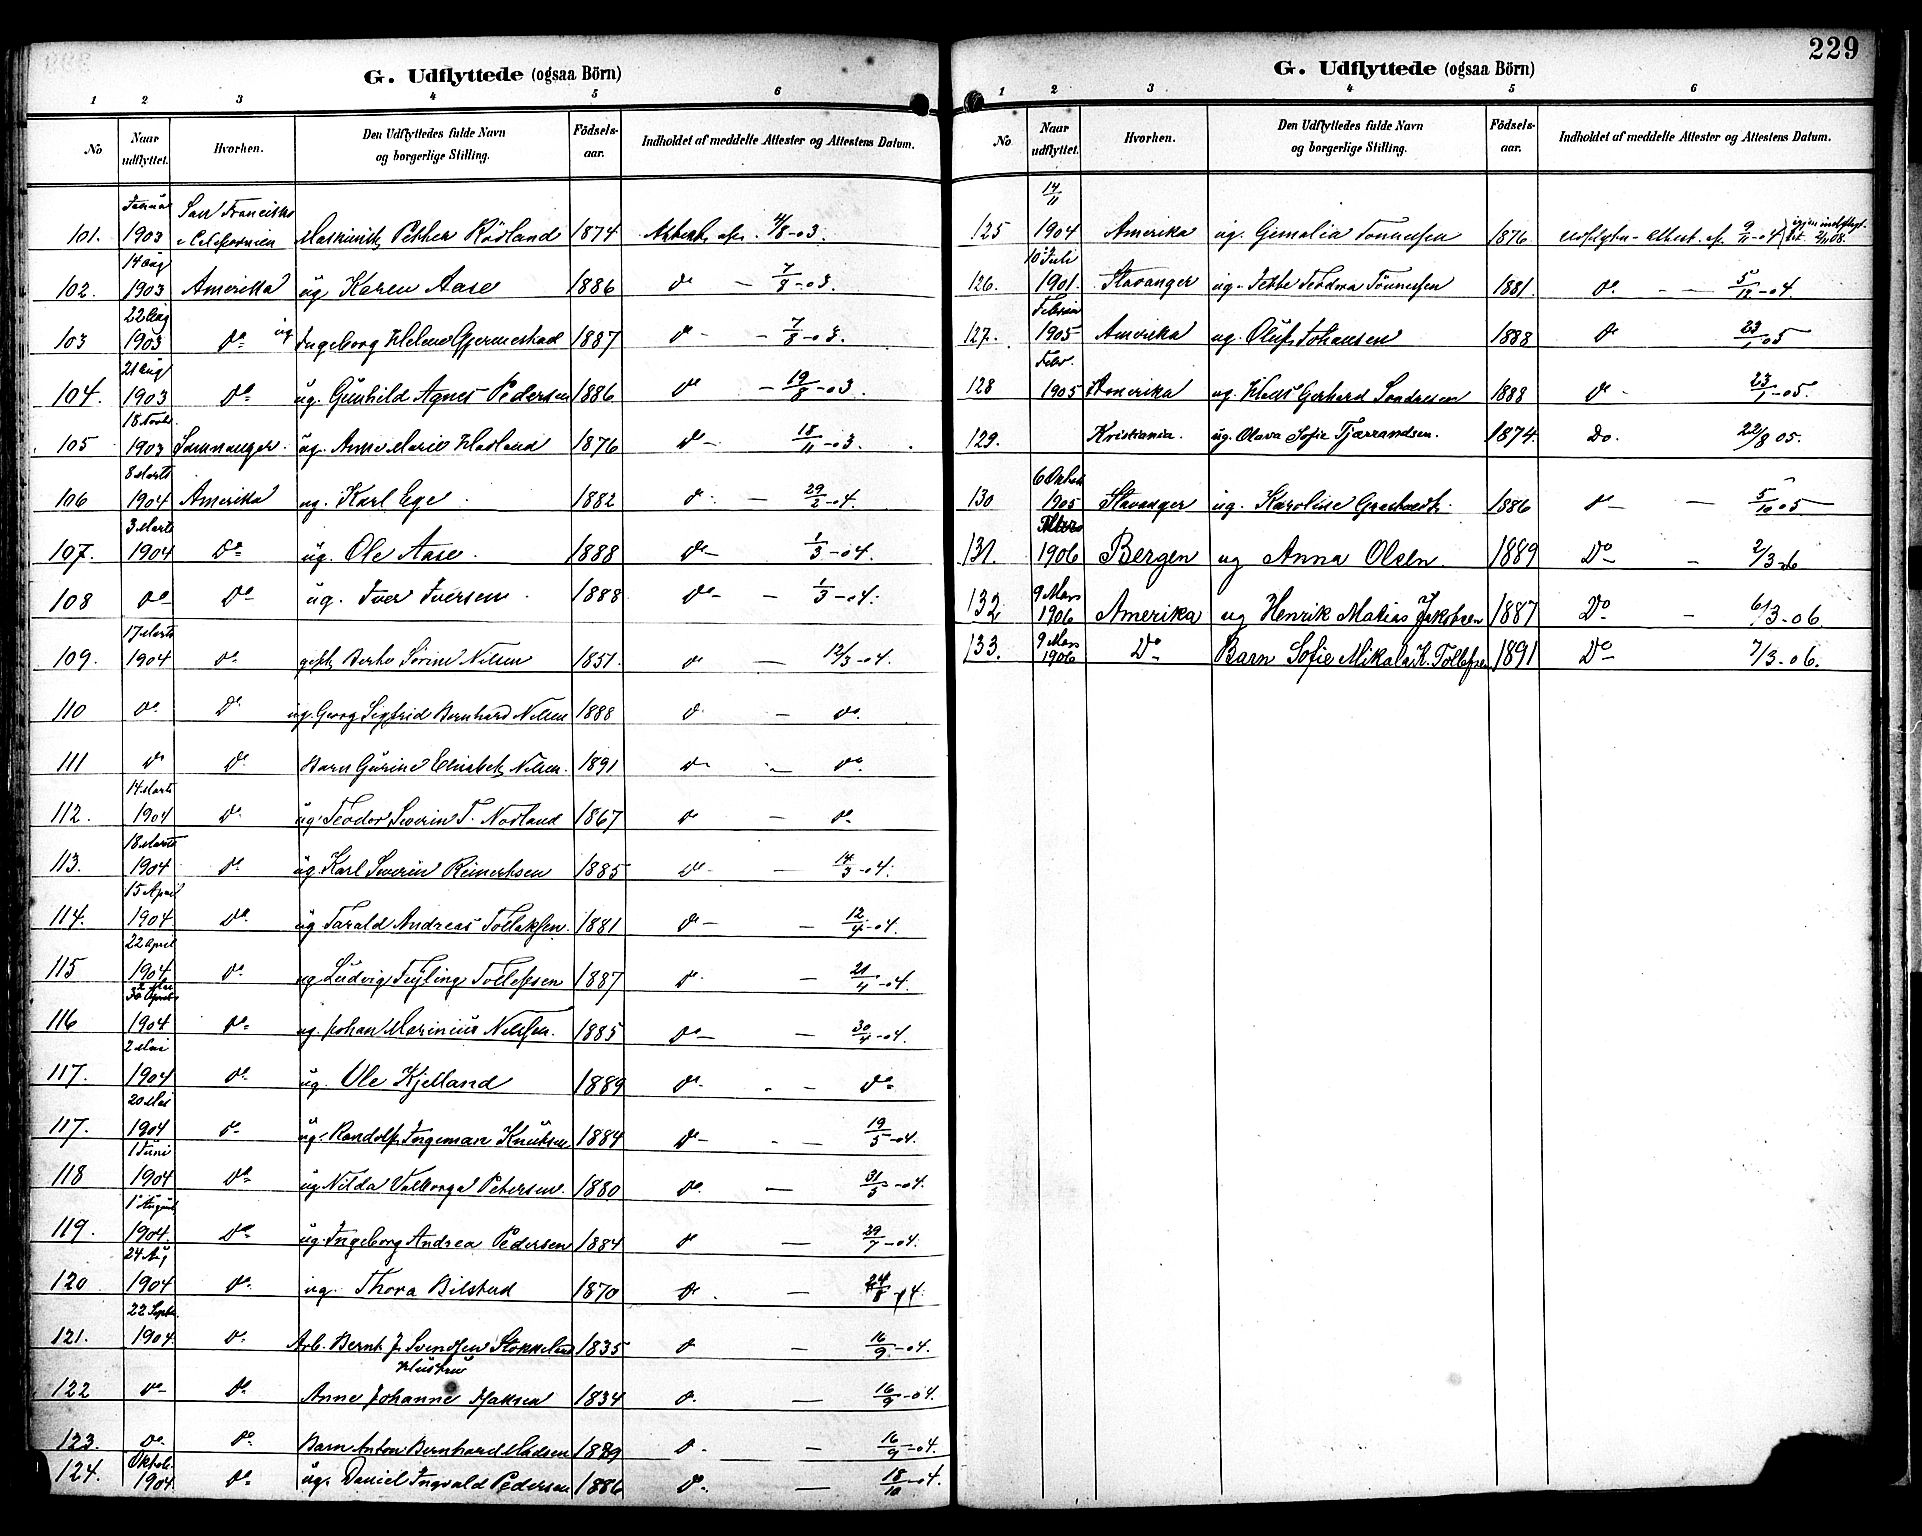 229
G. Udflyttede (ogsaa Börn)
1 2 3 4 5 6
No | Naar udflyttet. | Hvorhen. | Den Udflyttedes fulde Navn og borgerlige Stilling. | Födsels-aar. | Indholdet af meddelte Attester og Attestens Datum.
101. | Januar 1903 | San Francisko Californien | Maskinist Petter Rödland | 1874 | Attest af 4/8-03.
102. | 14 Aug 1903 | Amerika | ug Karen Aase | 1886 | do — 7/8-03.
103 | 22 Aug 1903 | Do | ug Ingeborg Helene Gjermestad | 1887 | do — 7/8-03.
104. | 21 Aug 1903 | Do | ug. Gunhild Agnes Pedersen | 1886 | do — 19/8-03.
105 | 18 Novb 1903 | Samnanger. | ug. Anne Marie Hadland | 1876 | Do — 18/11-03.
106 | 8 Marts 1904 | Amerika | ug. Karl Ege | 1882 | do — 29/2-04.
107. | 3 Marts 1904 | Do | ug. Ole Aase. | 1888 | do — 1/3-04.
108 | do | Do | ug. Iver Iversen | 1888 | do — 1/3-04.
109. | 17 Marts 1904 | do | gift Berte Sörine Nilsen | 1851. | do — 12/3-04.
110 | do | Do | ug. Georg Sigfrid Bernhard Nilsen | 1888 | do — do
111 | do | do | Barn Gurine Elisabet Nilsen. | 1891 | do — do
112. | 14 Marts 1904 | Do | ug. Teodor Severin T. Nodland | 1867 | do — do
113. | 18 Marts 1904 | do | ug. Karl Severin Reinertsen | 1885 | do — 14/3-04.
114. | 15 April 1904 | Do | ug Tarald Andreas Tollaksen. | 1881 | do — 12/4-04.
115 | 22 April 1904 | do | ug Ludvig Tollefsen | 1887 | do — 21/4-04.
116 | 30 April 1904 | do | ug. Johan Marinius Nilsen. | 1885 | do — 30/4-04.
117. | 2 Mai 1904 | do | ug. Ole Kjelland | 1889 | do — do
117. | 20 Mai 1904 | do | ug. Randolf Ingeman Knutsen | 1884 | do — 19/5-04.
118 | 1 Juni 1904 | Do | ug. Nilda Valborga Petersen. | 1880 | do — 31/5-04.
119. | 1 August 1904. | Do | ug. Ingeborg Andrea Pedersen | 1884 | do — 29/7-04.
120 | 24 Aug 1904 | do | ug. Thora Bilstad | 1870 | do — 24/8-04.
121. | 22 Septbr 1904. | do | Arb. Bernt J. Svendsen Stokkeland | 1835 | do — 16/9-04.
122 | do | do | Hustru Anne Johanne Isaksen | 1834 | do — 16/9-04.
123. | do | do | Barn Anton Bernhard Madsen | 1889 | do — 16/9-04.
124. | Oktob. 1904 | do | ug. Daniel Ingvald Pedersen | 1886 | do — 18/10-04.
G. Udflyttede (ogsaa Börn)
1 2 3 4 5 6
No | Naar udflyttet. | Hvorhen. | Den Udflyttedes fulde Navn og borgerlige Stilling. | Födsels-aar. | Indholdet af meddelte Attester og Attestens Datum.
125 | 14/11 1904 | Amerika | ug. Gemalia Tönnesen | 1876. | Udflytn-Attest. af 9/11-04 igjen indflyt.
126. | 10 Juli 1901. | Stavanger | ug. Teodora Tönnesen | 1881. | do — 5/12-04.
127. | Februar 1905 | Amerika | ug. Oluf Johansen | 1888 | do 23/1-05
128 | Febr. 1905 | Amerika | ug. Klaus Gerhard Sondresen | 1888 | do — 23/1-05.
129. | Kristiania. | ug. Olava Sofie Tjærandsen. | 1874. | Do. 22/8 05.
130 | 6 Oktob 1905 | Stavanger | ug. Karoline | 1886 | do — 5/10 05
131. | Mars 1906 | Bergen | ug Anna Olsen | 1889 | Do — 2/3-06
132. | 9 Mars 1906 | Amerika | ug Henrik Matias Jakobsen | 1887 | Do — 6/3-06.
133. | 9 Mars 1906 | Do | Barn Sofie Mikala K. Tollefsen | 1891 | Do — 7/3-06.